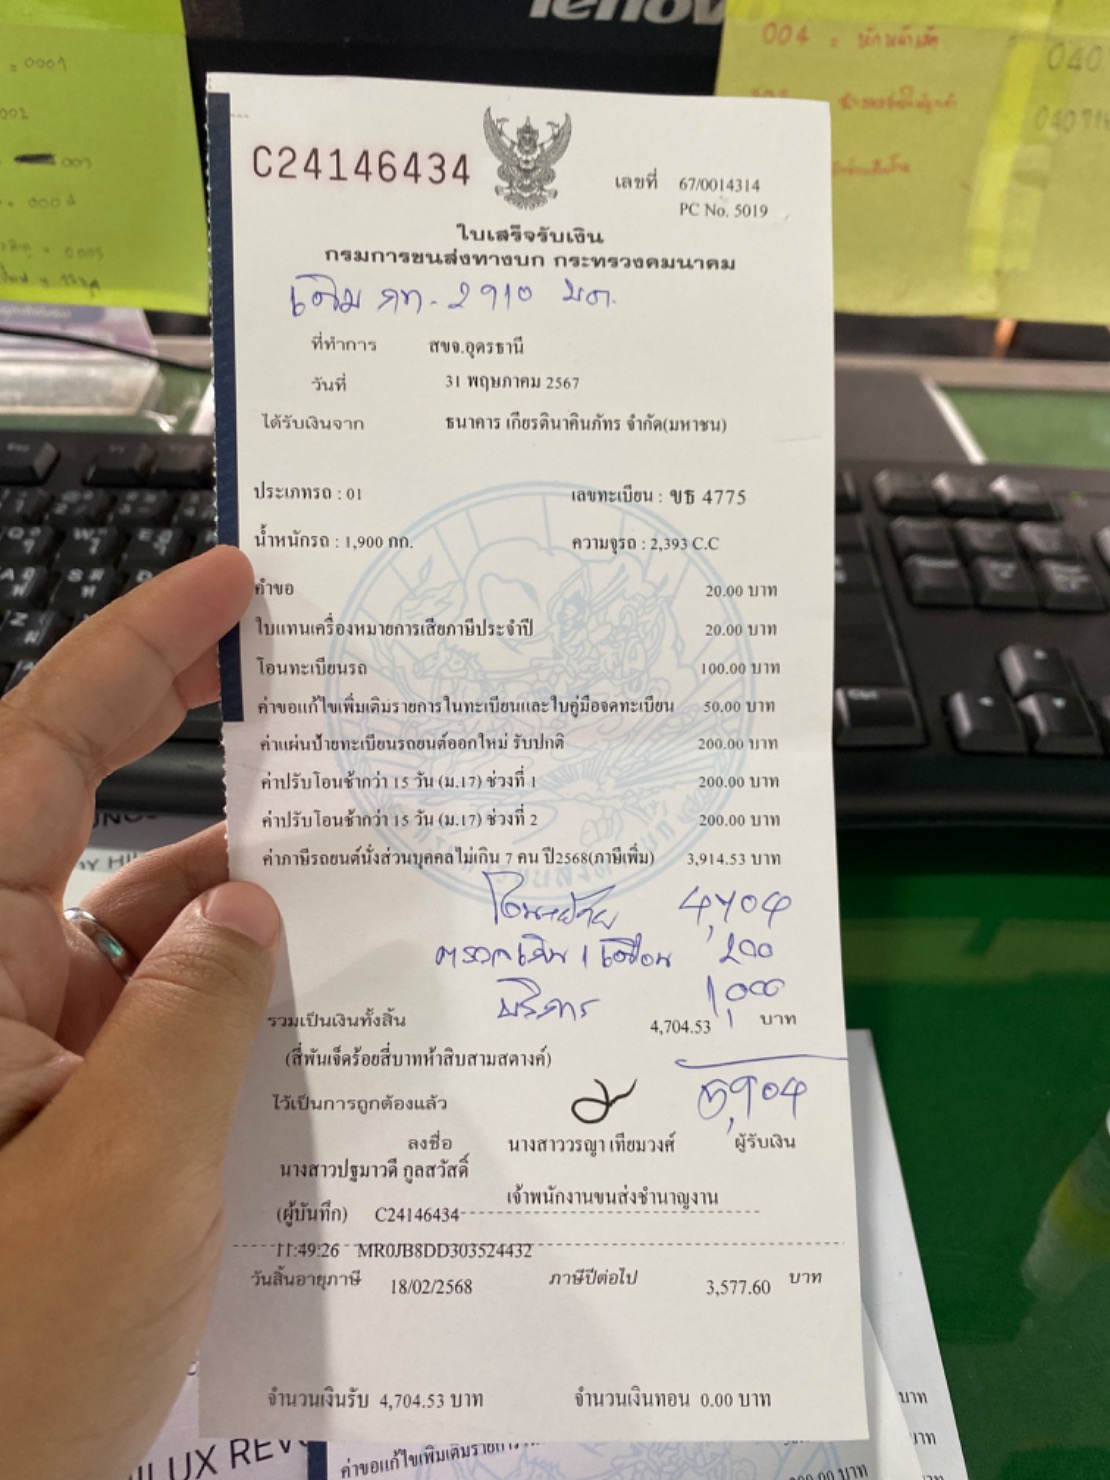 lenov
004 = 
040
= 0001
C24146434
เลขที่ 67/0014314
PC No. 5019
ใบเสร็จรับเงิน
กรมการขนส่งทางบก กระทรวงคมนาคม
เดิม กท-2910 มค.
ที่ทำการ สขจ.อุดรธานี
วันที่ 31 พฤษภาคม 2567
ได้รับเงินจาก ธนาคาร เกียรตินาคินภัทร จำกัด(มหาชน)
ประเภทรถ : 01 เลขทะเบียน : ขธ 4775
น้ำหนักรถ : 1,900 กก. ความจุรถ : 2,393 C.C
คำขอ 20.00 บาท
ใบแทนเครื่องหมายการเสียภาษีประจำปี 20.00 บาท
โอนทะเบียนรถ 100.00 บาท
ค่าขอแก้ไขเพิ่มเติมรายการในทะเบียนและใบคู่มือจดทะเบียน 50.00 บาท
ค่าแผ่นป้ายทะเบียนรถยนต์ออกใหม่ รับปกติ 200.00 บาท
ค่าปรับโอนช้ากว่า 15 วัน (ม.17) ช่วงที่ 1 200.00 บาท
ค่าปรับโอนช้ากว่า 15 วัน (ม.17) ช่วงที่ 2 200.00 บาท
ค่าภาษีรถยนต์นั่งส่วนบุคคลไม่เกิน 7 คน ปี2568(ภาษีเพิ่ม) 3,914.53 บาท
โอน+ย้าย 4,704
ตรวจเกิน 1 เดือน 200
บริการ 1,000
รวมเป็นเงินทั้งสิ้น 4,704.53 บาท
(สี่พันเจ็ดร้อยสี่บาทห้าสิบสามสตางค์)
5,904
ไว้เป็นการถูกต้องแล้ว
ลงชื่อ นางสาววรญา เทียมวงศ์ ผู้รับเงิน
นางสาวปฐมาวดี กูลสวัสดิ์
เจ้าพนักงานขนส่งชำนาญงาน
(ผู้บันทึก) C24146434
11:49:26 MR0JB8DD303524432
วันสิ้นอายุภาษี 18/02/2568 ภาษีปีต่อไป 3,577.60 บาท
จำนวนเงินรับ 4,704.53 บาท จำนวนเงินทอน 0.00 บาท
บาท
บาท
ค่าขอแก้ไขเพิ่มเติมรายการ